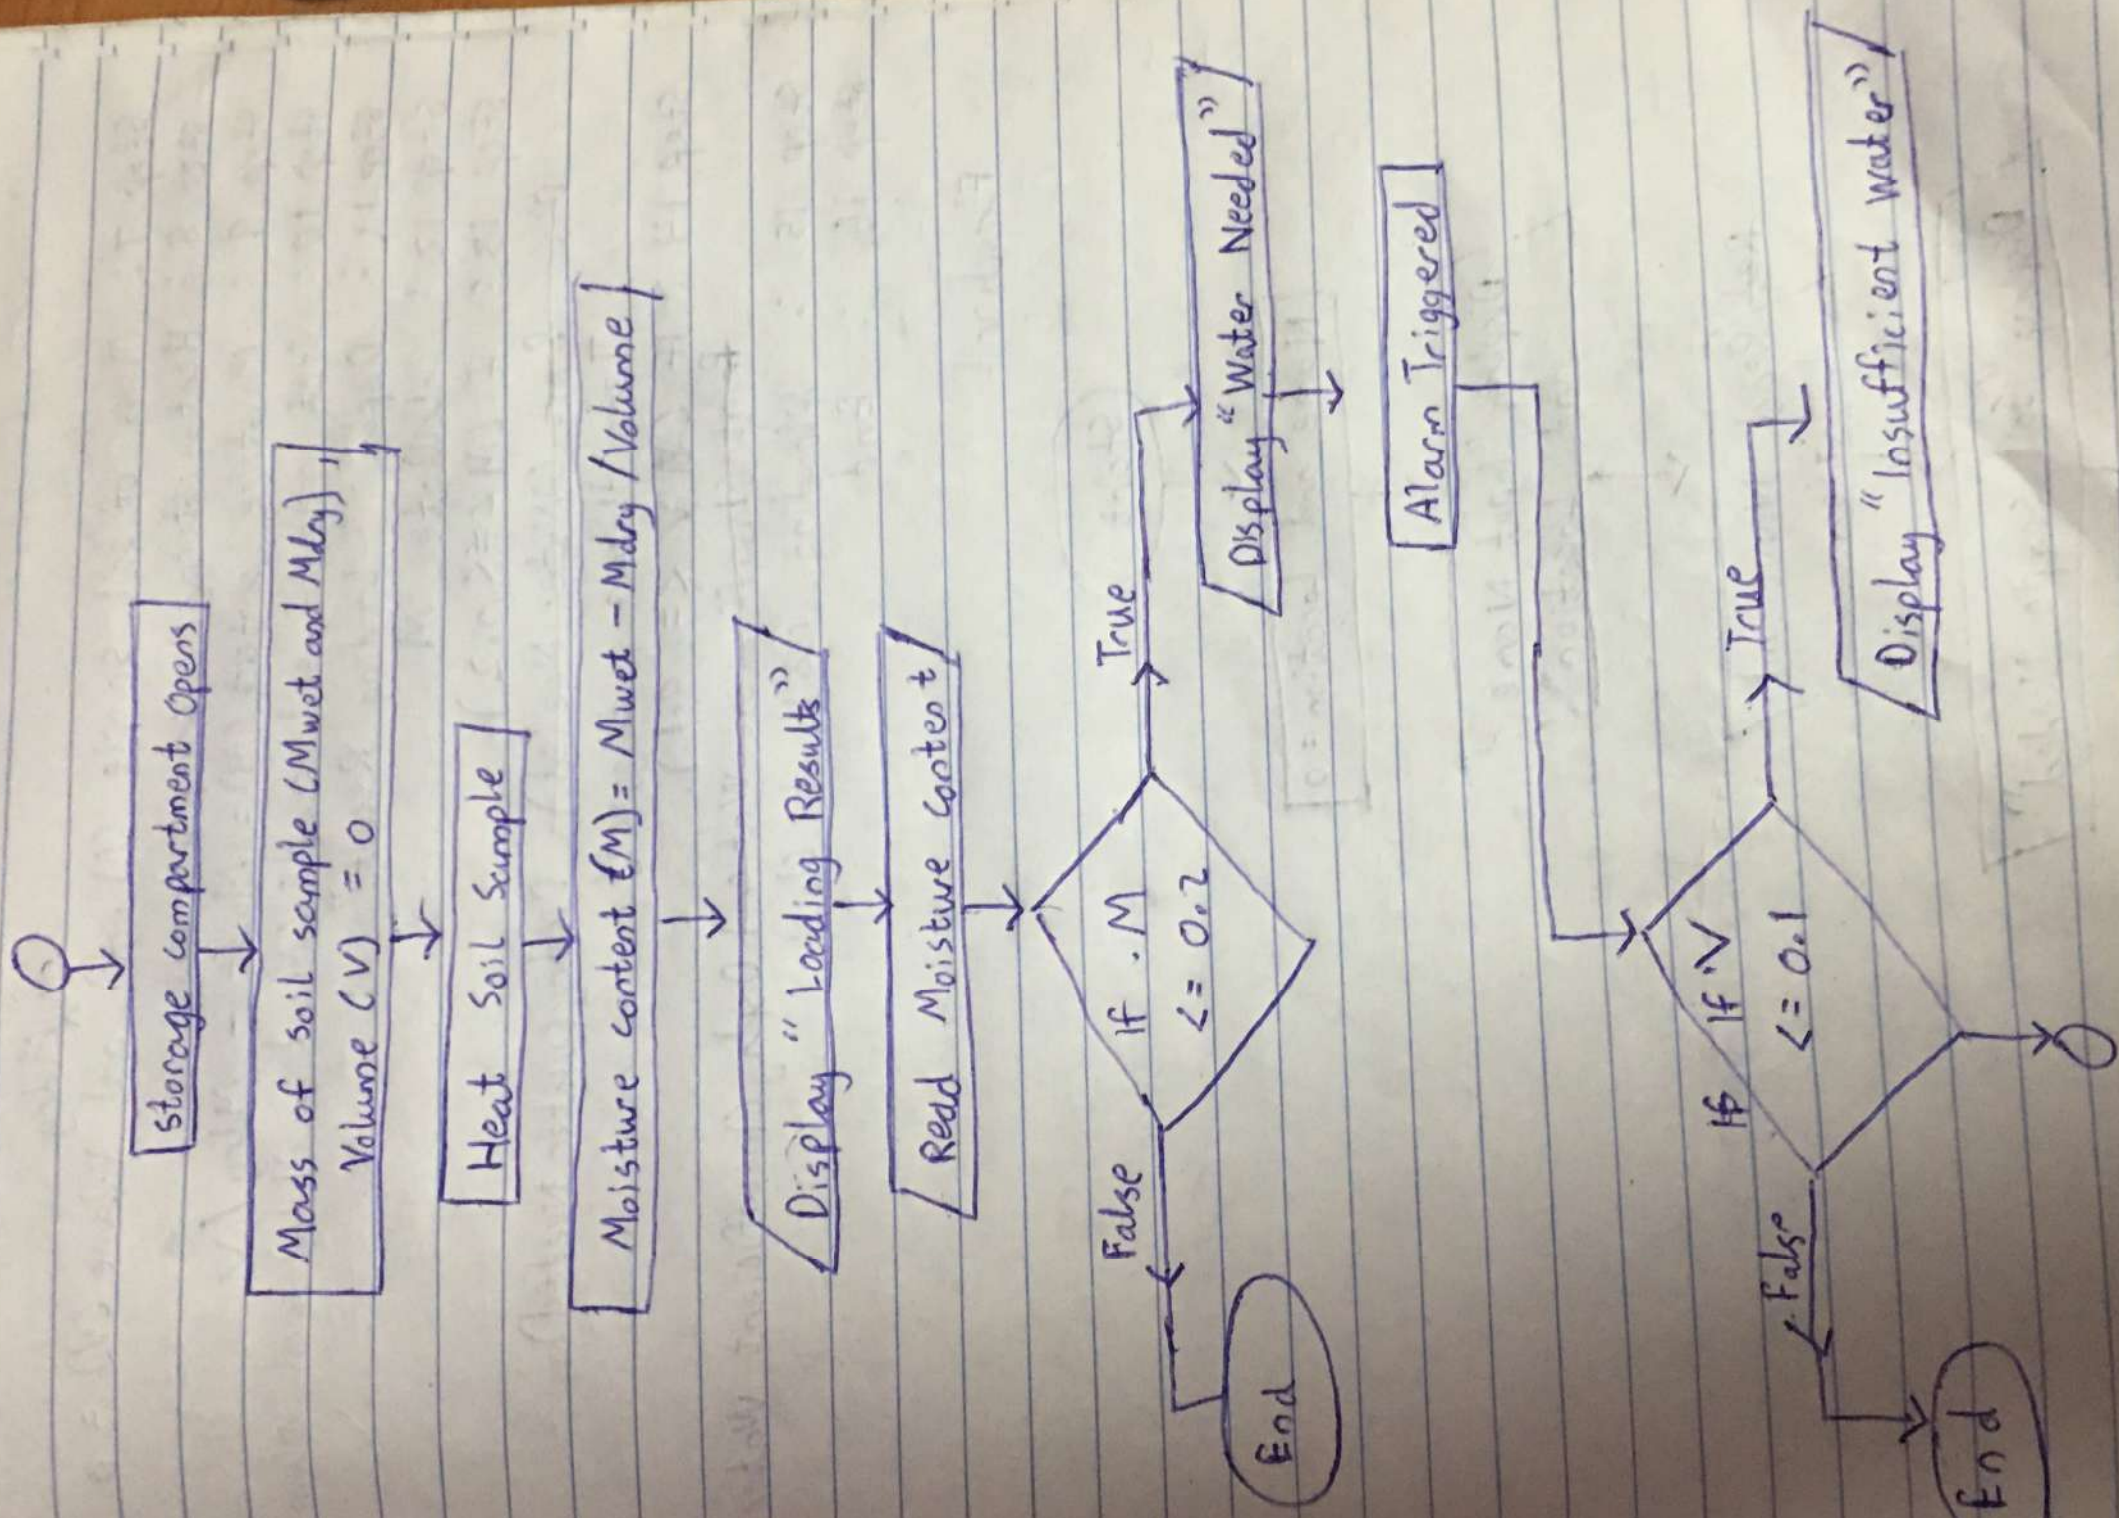 Storage compartment Opens
Mass of soil sample (Mwet and Mdry),
Volume (V) = 0
Heat Soil Sample
Moisture content (M) = Mwet - Mdry / Volume
Display "Loading Results"
Read Moisture content
If . M
<= 0.2
True
False
Display "Water Needed"
End
Alarm Triggered
If If V
<= 0.1
True
False
Display "Insufficient Water"
End